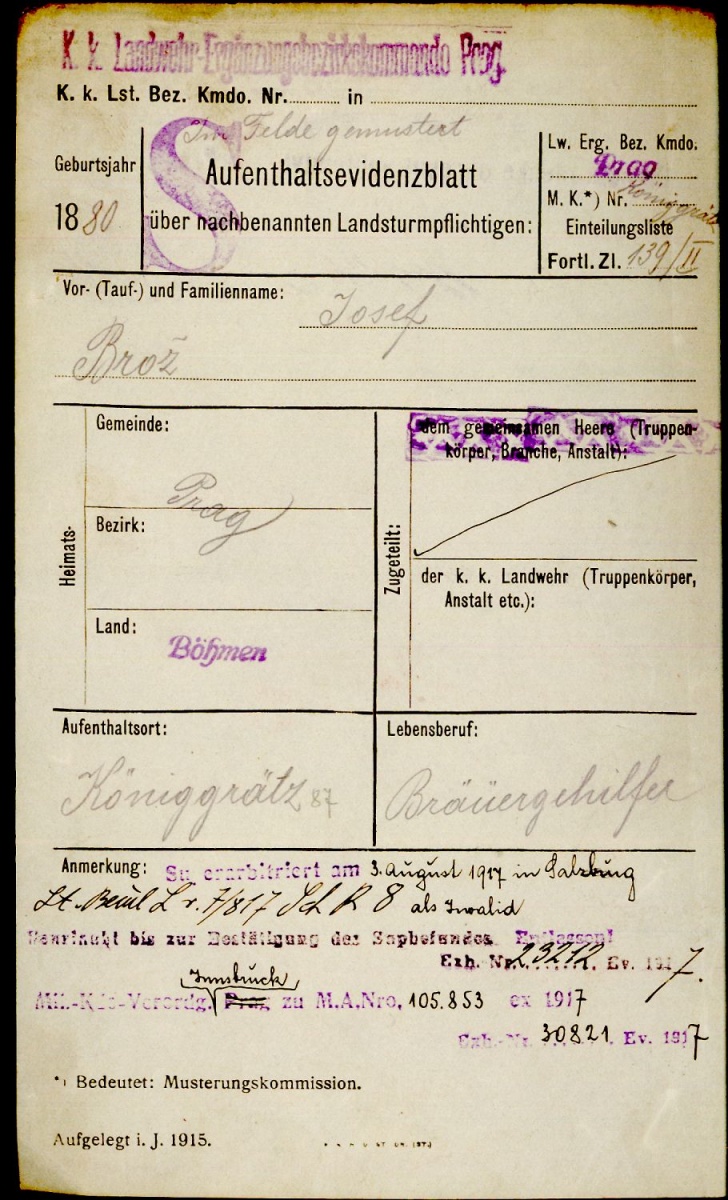 K. k. Landwehr-Ergänzungsbezirkskommando Prag.
K. k. Lst. Bez. Kmdo. Nr. in
Im Felde gemustert
S
Geburtsjahr
1880
Aufenthaltsevidenzblatt
über nachbenannten Landsturmpflichtigen:
Lw. Erg. Bez. Kmdo.
Prag
M. K.*) Nr. Königgrätz
Einteilungsliste
Fortl. Zl. 139/II
Vor- (Tauf-) und Familienname: Josef
Brož
Heimats-
Gemeinde:
Prag
Bezirk:
Land:
Böhmen
Zugeteilt:
dem gemeinsamen Heere (Truppen-
körper, Branche, Anstalt):
der k. k. Landwehr (Truppenkörper,
Anstalt etc.):
Aufenthaltsort:
Königgrätz 87
Lebensberuf:
Bräuergehilfe
Anmerkung: Superarbitriert am 3. August 1917 in Salzburg
7/817 8 als Invalid
Beurlaubt bis zur Bestätigung des Supbefundes Entlassen!
Exh. Nr. 23272. Ev. 1917.
Innsbruck
Mil.-Kdo-Verordg. Prag zu M.A.Nro. 105.853 ex 1917
Exh.-Nr. 30821. Ev. 1917
*) Bedeutet: Musterungskommission.
Aufgelegt i. J. 1915.